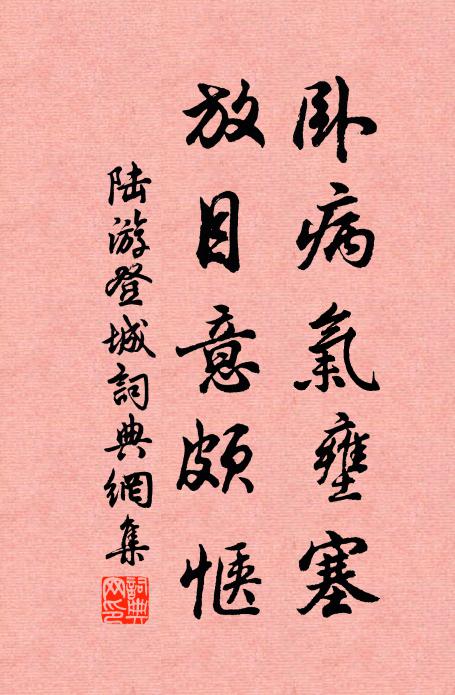 卧病氣壅塞
放目意頗愜
陆游登城詞典網集
詞典
网印